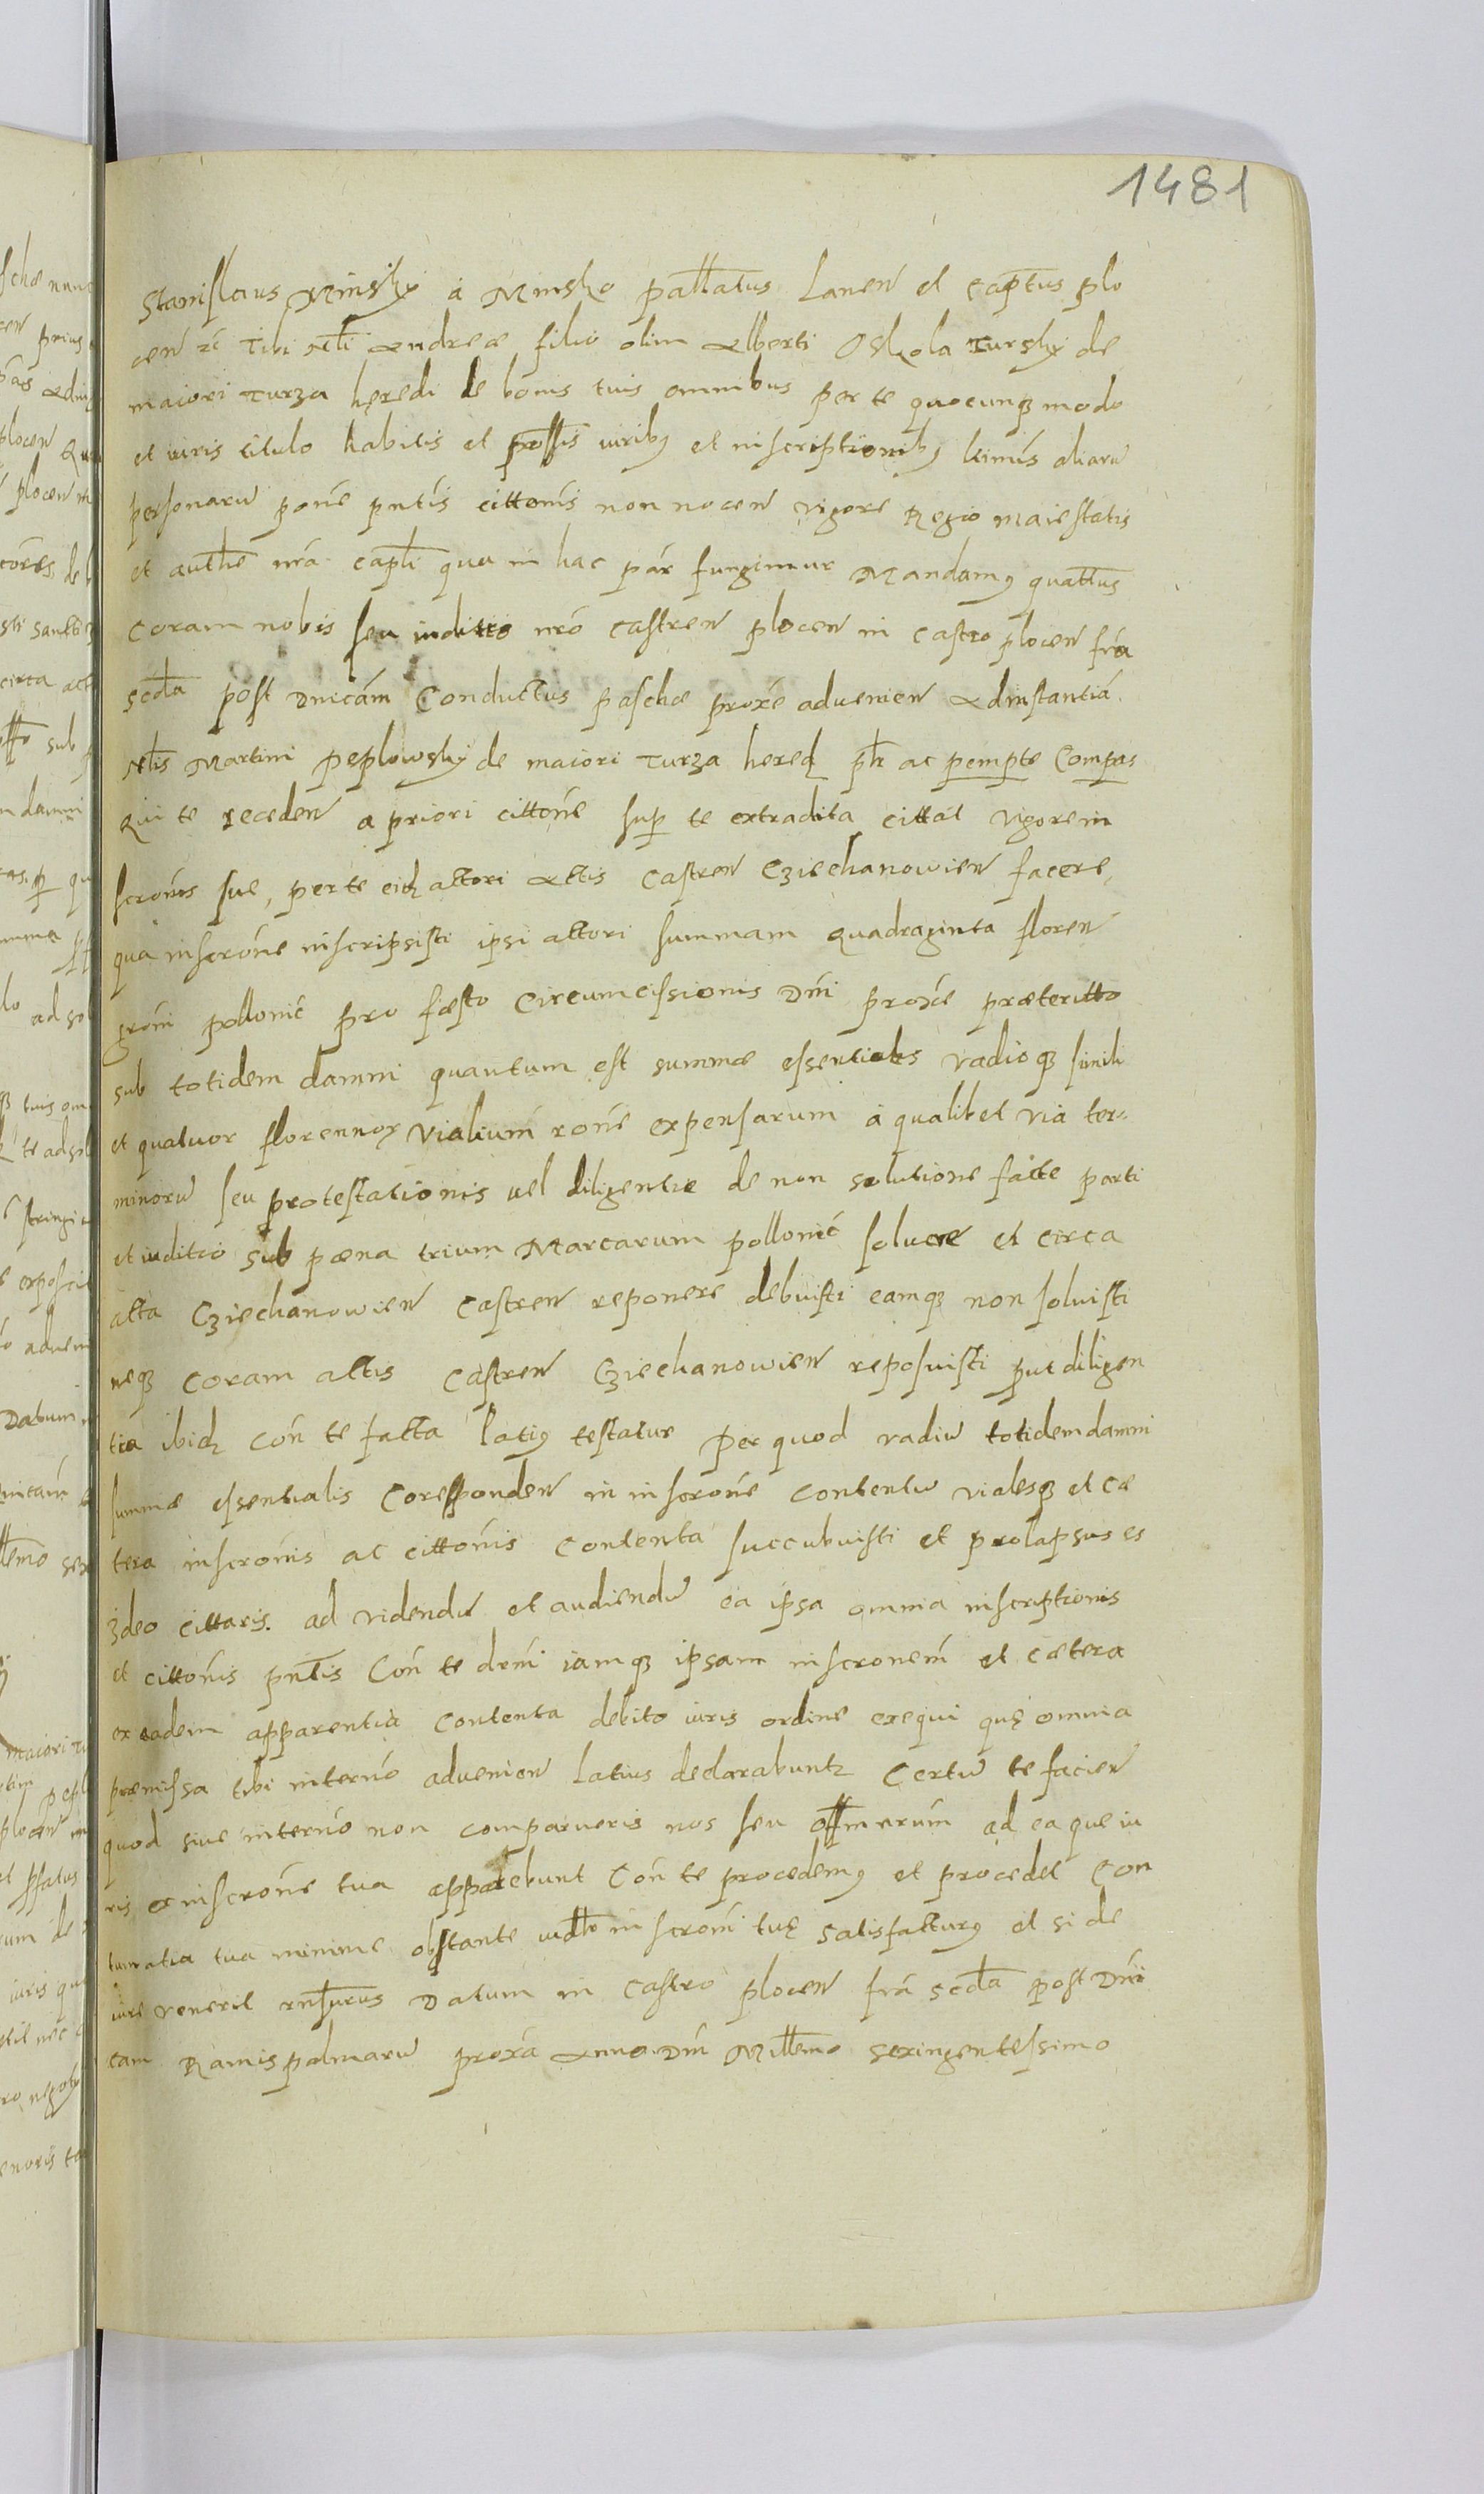 1481
Stanislaus Minsky a Minsko pallatus Lancen et captus plo
cen zc Tibi Nbli Andreae filio olim Alberti Oskola Tursky de
maiori Turza hęredi de bonis tuis omnibus per te quocunq modo
et iuris titulo habitis et possis iuribq et inscriptionibq aliaru
personaru pone pntis cittonis non nocen vigore Regio maiestatis
et authe nra capli qua in hac par fungimur Mandamq quattus
coram nobis seu iuditio nro castren plocen in castro plocen fra
scda post Dnicam Conductus paschae proxe advenien Adinstantia
Nblis Martini Peplowsky de maiori Turza hered ac pempte Compas
Qui te receden a priori cittone sup te extradita cittat vigore in
scronis sue, per te eid attori Actis Castren Cziechanowien facere,
qua inscrone inscripsisti ipsi attori summam quadraginta floren
pollonic pro fæsto Circumcissionis Dni proxe præteritto
sub totidem damni quantum est summæ essentialis vadioq simili
et quatuor florennor vialium rone expensarum a qualibet via ter-
minoru seu protestationis vel diligentie de non solutione facte parti
et iuditio sub pæna trium Marcarum pollonic soluere et circa
acta Cziechanowien Castren reponere debuisti eamq non soluisti
neq coram actis Castren Cziechanowien reposuisti put diligen
tia ibid con te facta latiq testatur Per quod vadiu totidem damni
summæ essentialis Coresponden in inscrone contentu vialesq et cæ
tera inscronis ac cittonis contenta succubuisti et prolapsus es
Ideo cittaris. ad videndu et audiendu ea ipsa omnia inscriptionis
et cittonis pntis Con te drni iamq ipsam inscronem et cætera
ex eadem apparentia contenta debito iuris ordine exequi quę omnia
præmissa tibi interno advenien latius declarabunt Certu te facien
quod sive interno non comparueris nos seu offm nrum ad ea que iu
ris ex inscrone tua apparebunt Con te procedemq et procedet Con
tumatia tua minime obstante inscroni tuę satisfacturq et si de
iure venerit rnsurus Datum in Castro plocen fra scda post Dni
cam Ramis palmaru proxa Anno Dni Millemo sexingentessimo